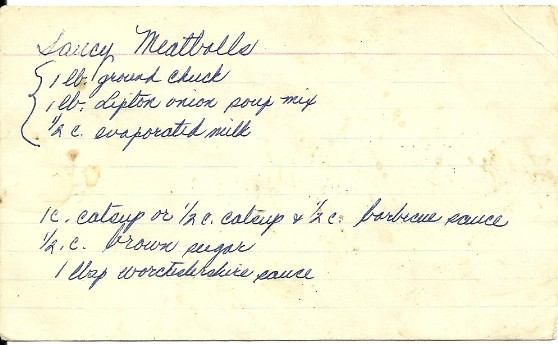 Saucy Meatballs
1 lb. ground chuck
1 lb. Lipton onion soup mix
1/2 c. evaporated milk
1 c. catsup or 1/2 c. catsup & 1/2 c. barbecue sauce
1/2 c. brown sugar
1 tbsp worchidershire sauce